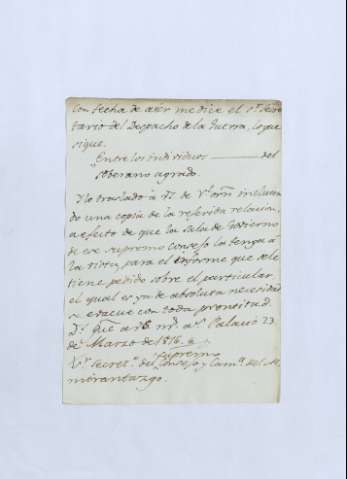 Con fecha de ayer me dice el Sr. Secre
tario del Despacho de la Guerra, lo que
sigue.
Entre los individuos ——— del
soberano agrado.
Y lo traslado à V. de Rl. orn. incluien
do una copia de la referida relacion,
a efecto de que la Sala de Govierno
de ese supremo consejo la tenga à
la vista para el informe que se le
tiene pedido sobre el particular
el qual es ya de absoluta necesidad
se evacue con toda prontitud.
D.s gue. a V. ms. as. Palacio 23
de Marzo de 1816. =
Sr. Secret.o del supremo Consejo y Cam.a del Al
mirantazgo.